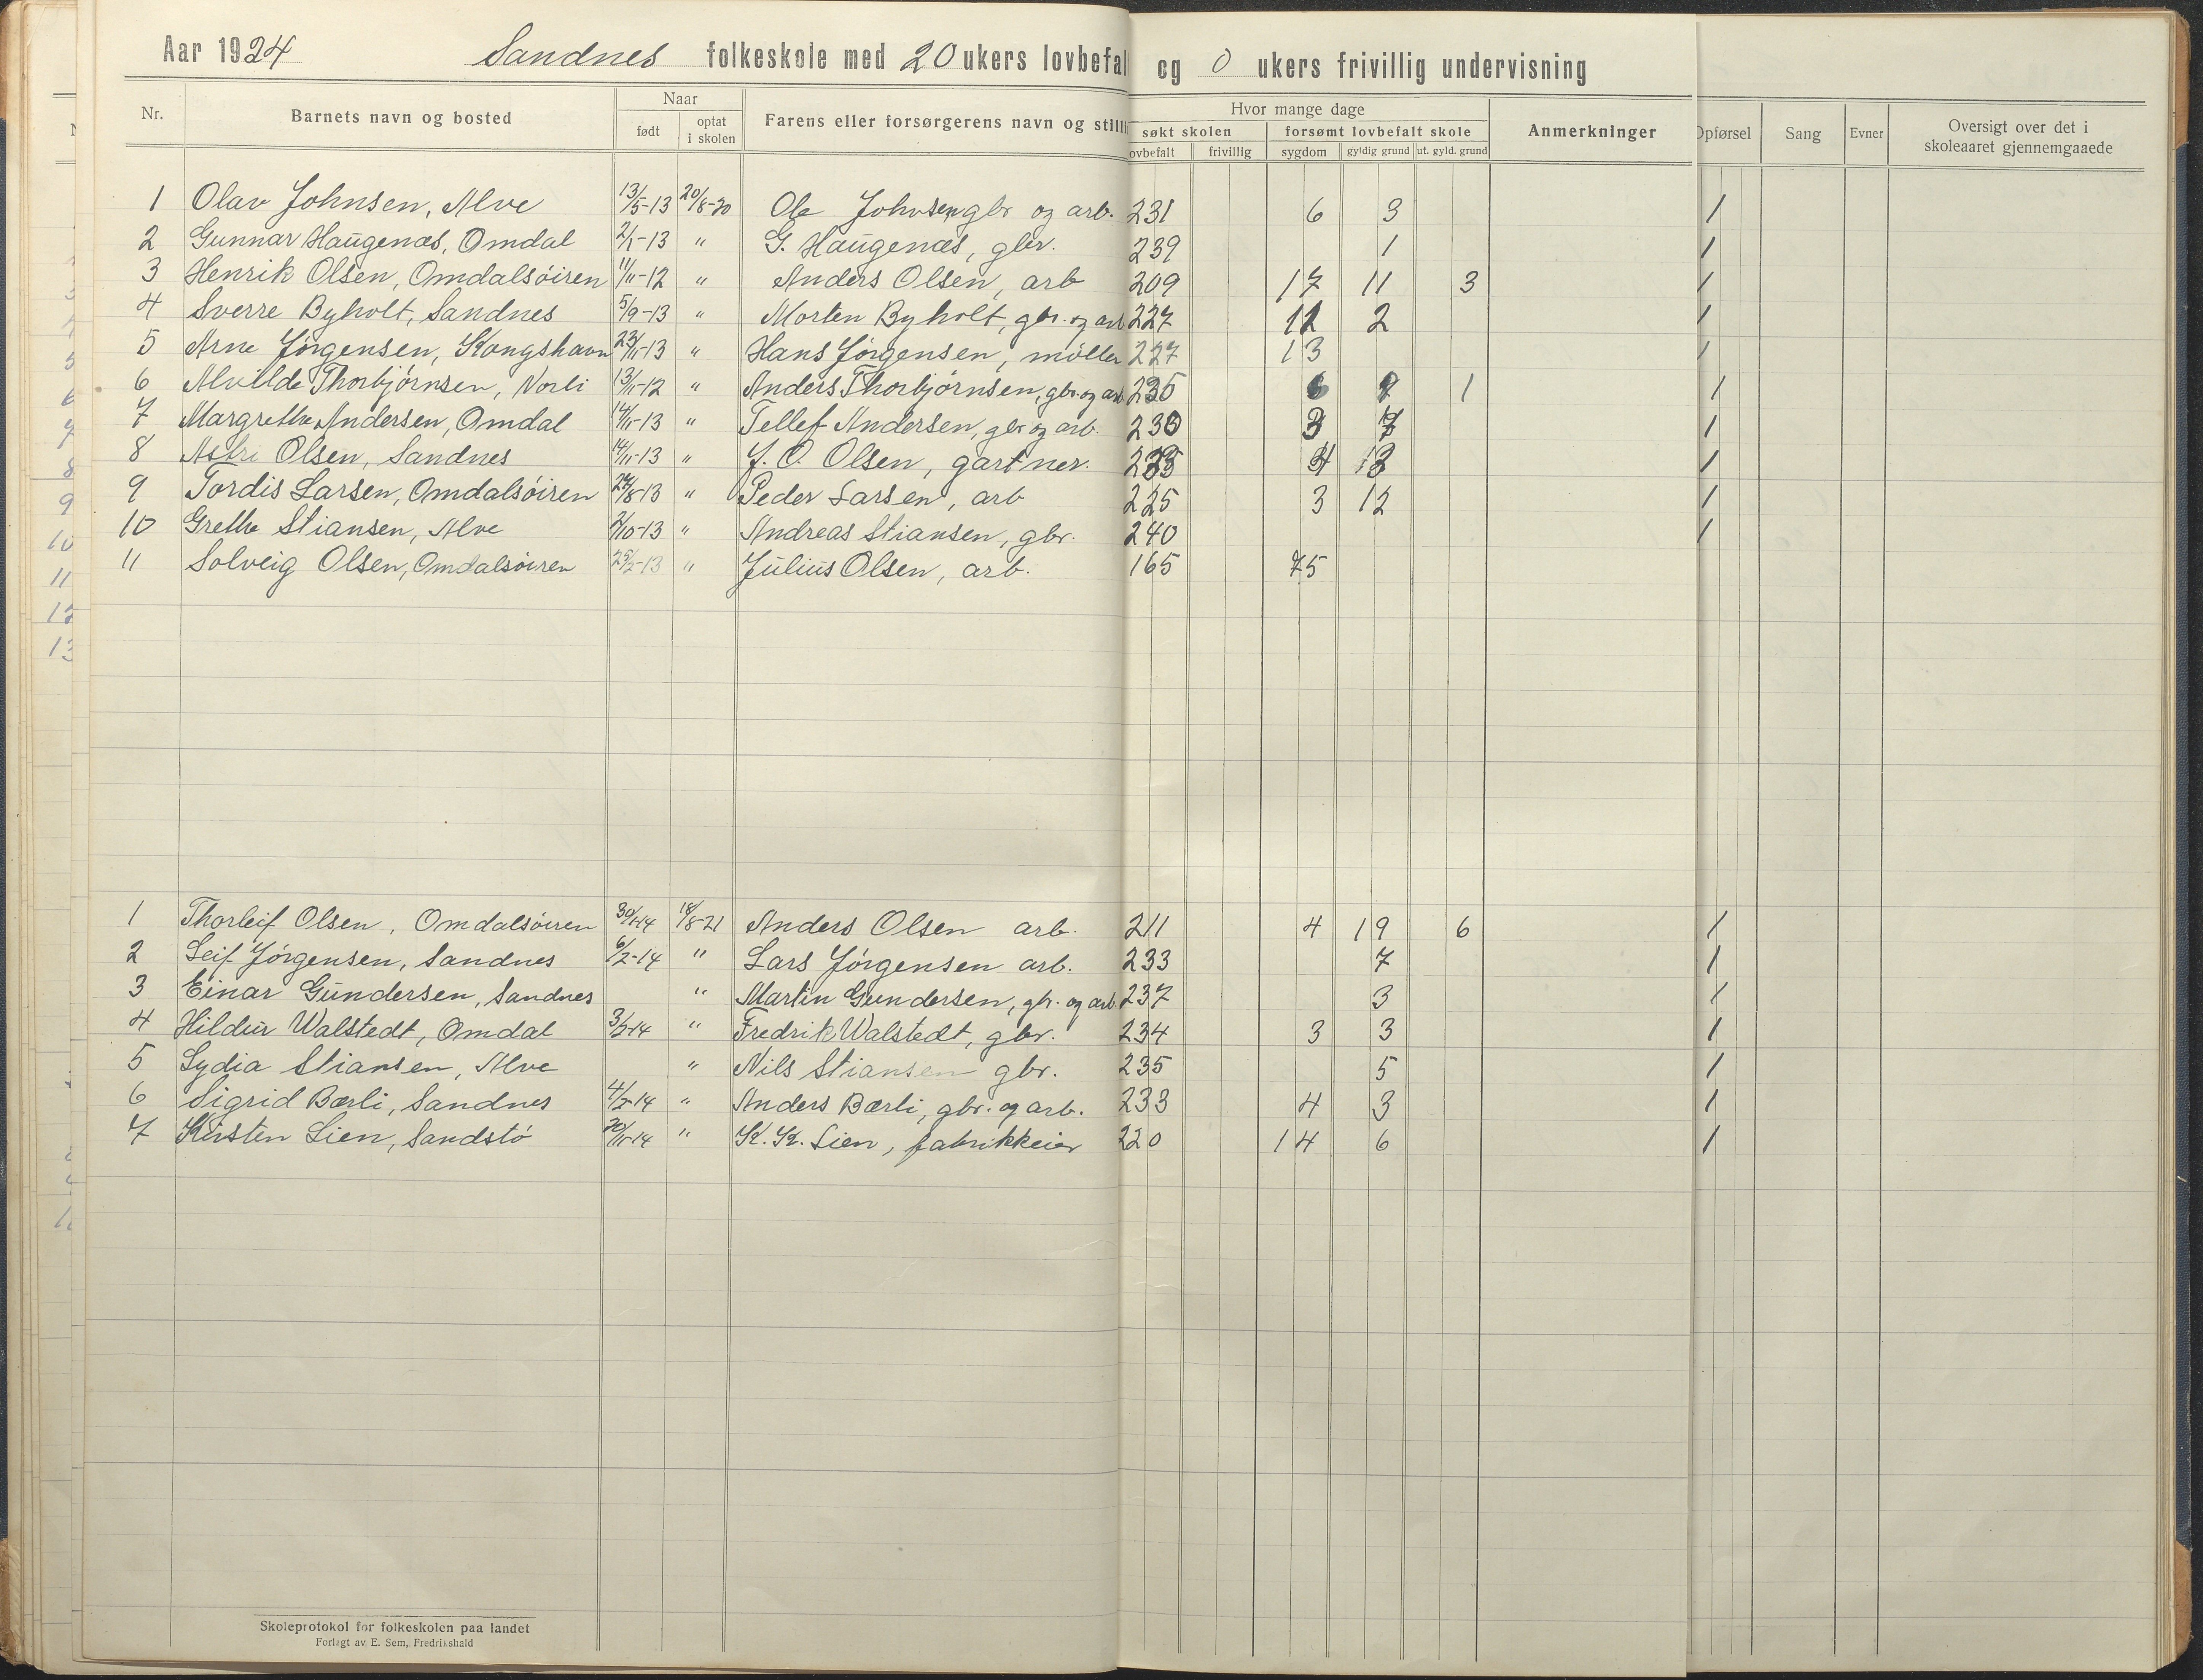 Aar 1924 Sandnes folkeskole med 20 ukers lovbefal og 0 ukers frivillig undervisning
Nr. Barnets navn og bosted Naar født optat i skolen Farens eller forsørgerens navn og still Hvor mange dage søkt skolen ovbefalt frivillig forsømt lovbefalt skole sygdom gyldig grund ut. gyld. grund Anmerkninger Opførsel Sang Evner Oversigt over det i skoleaaret gjennemgaaede
1 Olav Johnsen, Alve 13/5-13 20/8-20 Ole Johnsen gbr og arb. 231 6 3 1
2 Gunnar Haugenæs, Omdal 2/1-13 " G. Haugenæs, gbr. 239 1 1
3 Henrik Olsen, Omdalsøiren 11/11-12 " Anders Olsen, arb 209 17 11 3 1
4 Sverre Byholt, Sandnes 5/9-13 " Morten Byholt, gbr. og arb 227 11 2 1
5 Arne Jørgensen, Kongshavn 23/11-13 " Hans Jørgensen, møller 227 13 1
6 Alvilde Thorbjørnsen, Norli 13/11-12 " Anders Thorbjørnsen, gbr. og arb 1 1
7 Margrethe Andersen, Omdal 14/11-13 " Tellef Andersen, gbr og arb. 230 3 1
8 Astri Olsen, Sandnes 14/11-13 " J. O. Olsen, gartner. 4 1
9 Tordis Larsen, Omdalsøiren 24/8-13 " Peder Larsen, arb 225 3 12 1
10 Grethe Stiansen, Alve 2/10-13 " Andreas Stiansen, gbr. 240 1
11 Solveig Olsen, Omdalsøiren 25/2-13 " Julius Olsen, arb. 165 75
1 Thorleif Olsen, Omdalsøiren 30/1-14 18/8-21 Anders Olsen arb. 211 4 19 6 1
2 Leif Jørgensen, Sandnes 6/2-14 " Lars Jørgensen arb. 233 7 1
3 Einar Gundersen, Sandnes " Martin Gundersen, gbr. og arb. 237 3 1
4 Hildur Walstedt, Omdal 3/2-14 " Fredrik Walstedt, gbr. 234 3 3 1
5 Lydia Stiansen, Alve " Nils Stiansen gbr. 235 5 1
6 Sigrid Bærli, Sandnes 4/2-14 " Anders Bærli, gbr. og arb. 233 4 3 1
7 Kirsten Lien, Sandstø 20/11-14 " K. K. Lien, fabrikkeier 220 14 6 1
Skoleprotokol for folkeskolen paa landet
Forlagt av E. Sem, Fredrikshald